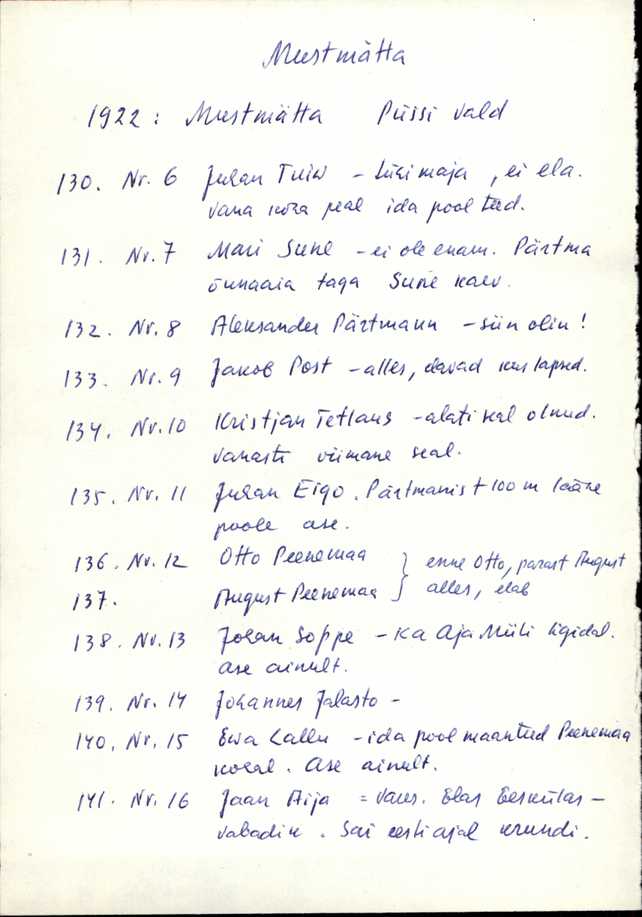 Mustmätta
1922: Mustmätta Püssi vald
130. Nr. 6 Juhan Tuiw - maja, ei ela.
vana koha peal ida pool teed.
131. Nr. 7 Mari Sune - ei ole enam. Pärtma
õunaaia taga Sune kaev.
132. Nr. 8 Aleksander Pärtmann - siin olin!
133. Nr. 9 Jakob Post - alles, lapsed.
134. Nr. 10 Kristjan Tetlaus - alati seal olnud.
vanasti viimane seal.
135. Nr. 11 Juhan Eigo. Pärtmanist 100 m lääne
poole ase.
136. Nr. 12 Otto Peenemaa } enne Otto, pärast August
137. August Peenemaa alles, elab
138. Nr. 13 Johan Soppe - ka Aja Mihli ligidal.
ase ainult.
139. Nr. 14 Johannes Jalasto -
140. Nr. 15 Ewa Kallu - ida pool maanteed Peenemaa
kohal. Ase ainult.
141. Nr. 16 Jaan Aija = Elas Eesküla -
vabadik. Sai eesti ajal krundi.